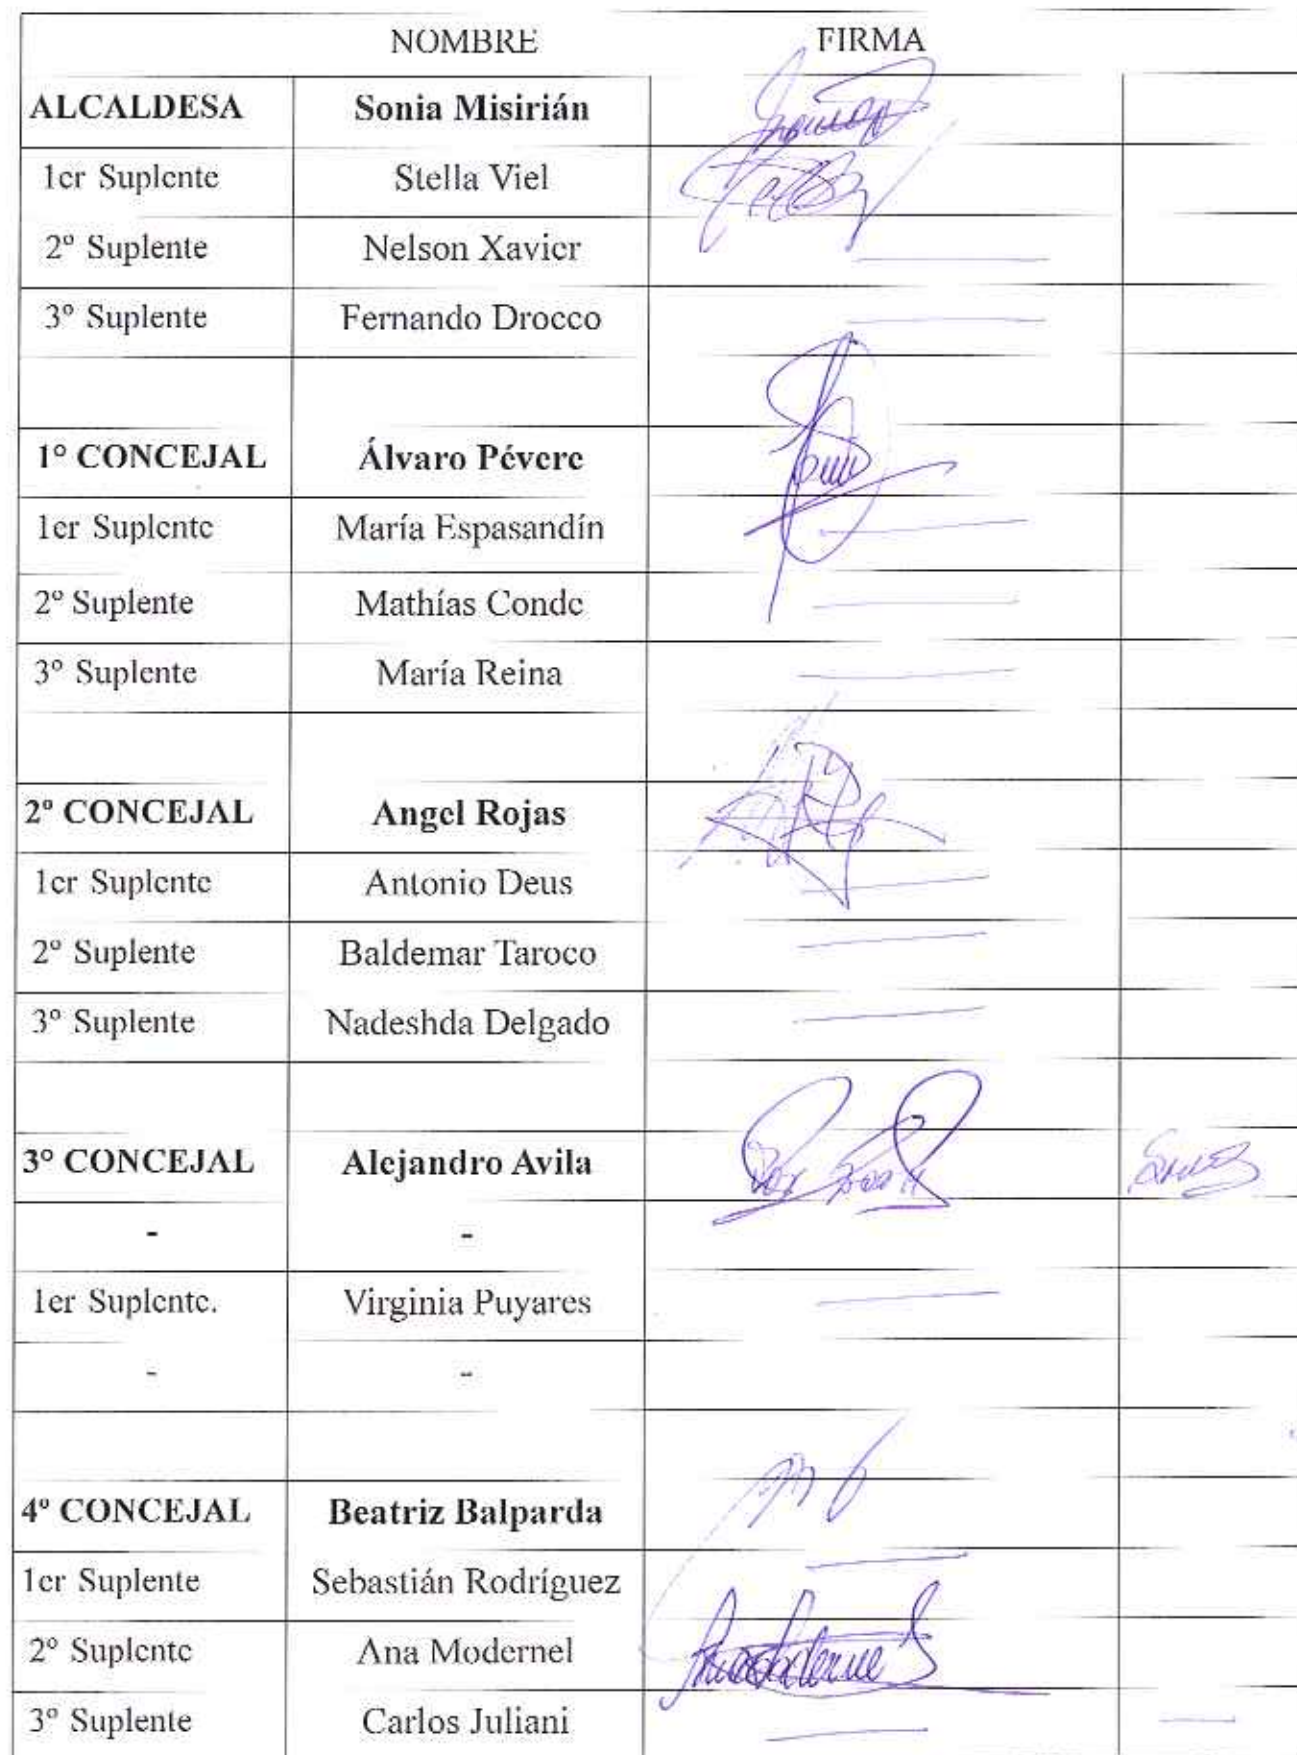 NOMBRE FIRMA
ALCALDESA Sonia Misirián
1er Suplente Stella Viel
2º Suplente Nelson Xavier
3º Suplente Fernando Drocco
1º CONCEJAL Álvaro Pévere
1er Suplente María Espasandín
2º Suplente Mathías Conde
3º Suplente María Reina
2º CONCEJAL Angel Rojas
1er Suplente Antonio Deus
2º Suplente Baldemar Taroco
3º Suplente Nadeshda Delgado
3º CONCEJAL Alejandro Avila
- -
1er Suplente. Virginia Puyares
- -
4º CONCEJAL Beatriz Balparda
1er Suplente Sebastián Rodríguez
2º Suplente Ana Modernel
3º Suplente Carlos Juliani